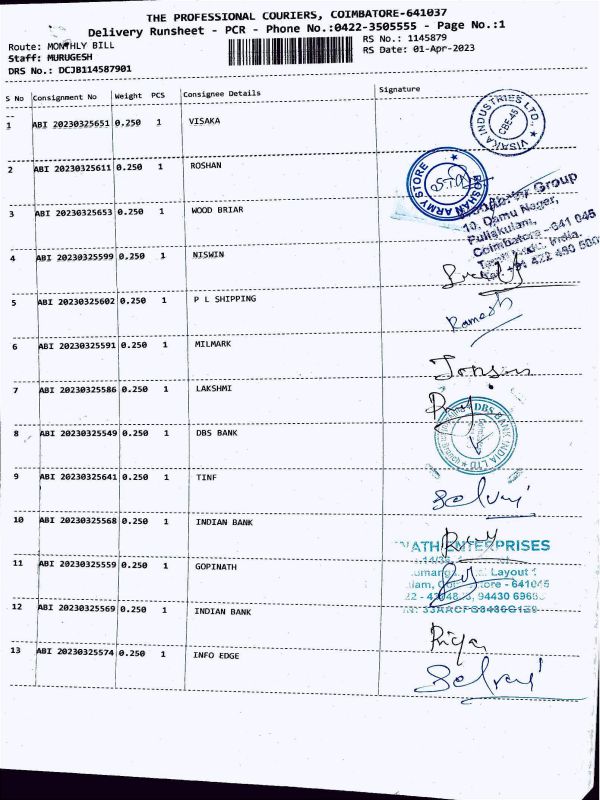 THE PROFESSIONAL COURIERS, COIMBATORE-641037
Delivery Runsheet - PCR - Phone No.:0422-3505555 - Page No.:1
Route: MONTHLY BILL
RS No.: 1145879
Staff: MURUGESH
RS Date: 01-Apr-2023
DRS No.: DCJB114587901
S No Consignment No Weight PCS Consignee Details Signature
1 ABI 20230325651 0.250 1 VISAKA
VISAKA INDUSTRIES LTD. CBE-45
2 ABI 20230325611 0.250 1 ROSHAN
ROSHAN ARMY STORE
3 ABI 20230325653 0.250 1 WOOD BRIAR
Group
10, Damu Nagar,
Puliakulam,
Coimbatore -641 045
India.
+91 422 430 500
4 ABI 20230325599 0.250 1 NISWIN
5 ABI 20230325602 0.250 1 P L SHIPPING
Ramesh
6 ABI 20230325591 0.250 1 MILMARK
7 ABI 20230325586 0.250 1 LAKSHMI
8 ABI 20230325549 0.250 1 DBS BANK
DBS BANK INDIA LTD
9 ABI 20230325641 0.250 1 TINF
Selvaj
10 ABI 20230325568 0.250 1 INDIAN BANK
11 ABI 20230325559 0.250 1 GOPINATH
NATH ENTERPRISES
Layout
- 641045
94430
12 ABI 20230325569 0.250 1 INDIAN BANK
Priya
13 ABI 20230325574 0.250 1 INFO EDGE
Selvaj